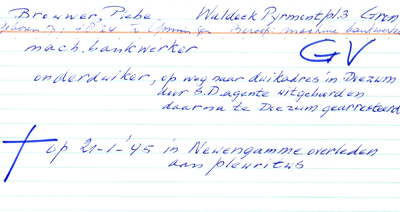 Brouwer, Piebe Waldeck Pyrmontpl.3 Gron
mach. bankwerker GV
onderduiker, op weg naar duikadres in Doezum
door S.D. agente uitgeborden
daarna te Doezum gearresteerd
op 21-1-'45 in Neuengamme overleden
aan pleuritus